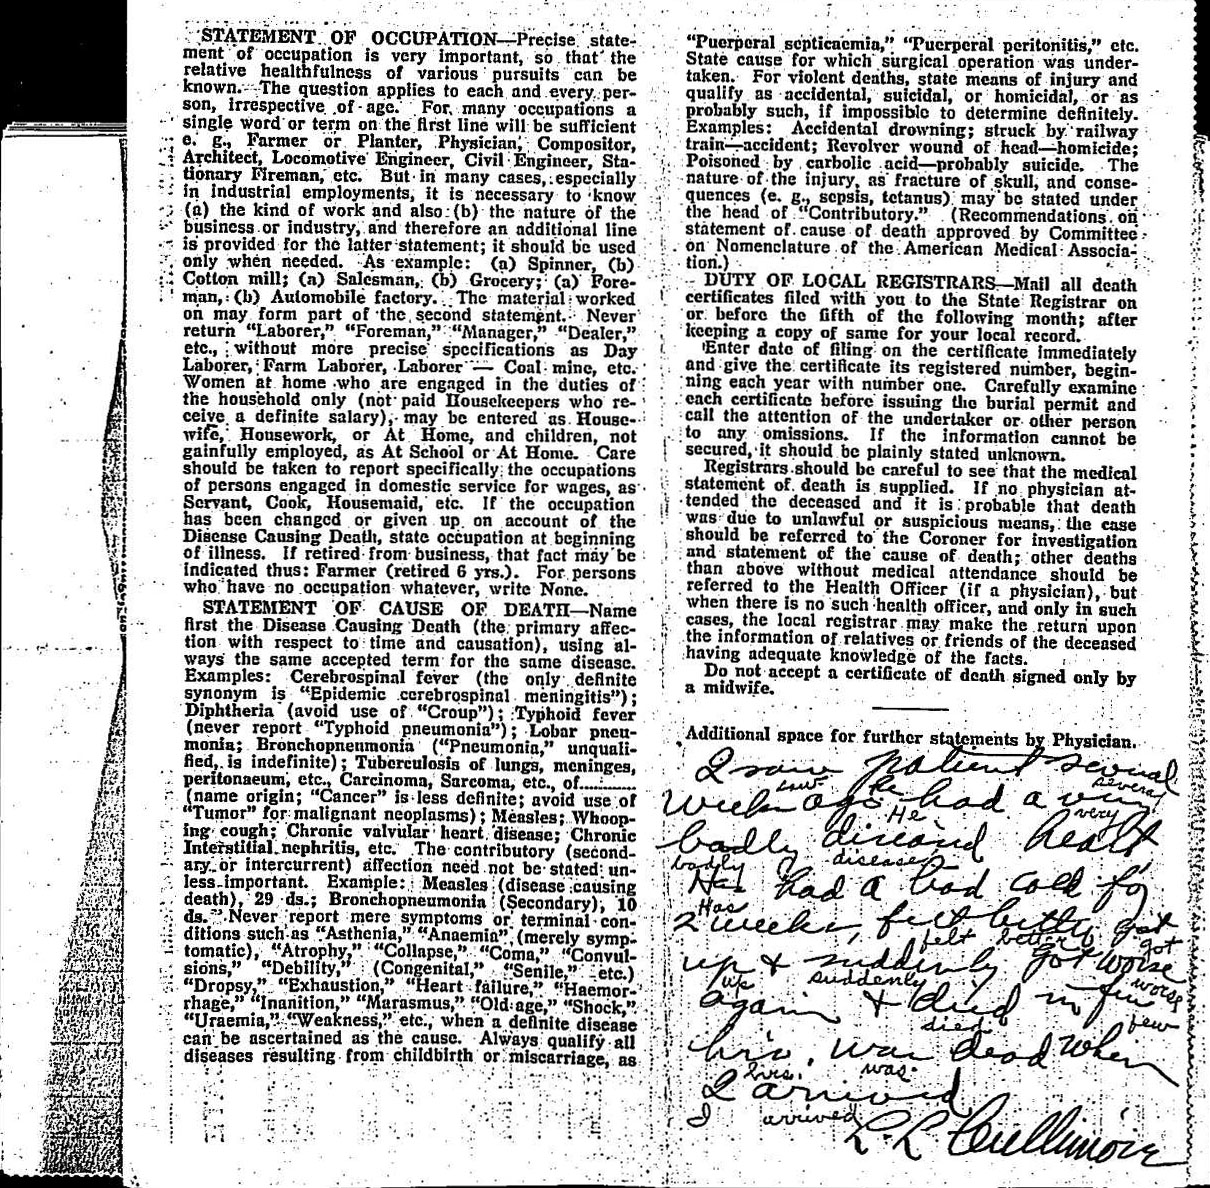 STATEMENT OF OCCUPATION—Precise state-
ment of occupation is very important, so that the
relative healthfulness of various pursuits can be
known. The question applies to each and every per-
son, irrespective of age. For many occupations a
single word or term on the first line will be sufficient
e. g., Farmer or Planter, Physician, Compositor,
Architect, Locomotive Engineer, Civil Engineer, Sta-
tionary Fireman, etc. But in many cases, especially
in industrial employments, it is necessary to know
(a) the kind of work and also (b) the nature of the
business or industry, and therefore an additional line
is provided for the latter statement; it should be used
only when needed. As example: (a) Spinner, (b)
Cotton mill; (a) Salesman, (b) Grocery; (a) Fore-
man, (b) Automobile factory. The material worked
on may form part of the second statement. Never
return "Laborer," "Foreman," "Manager," "Dealer,"
etc., without more precise specifications as Day
Laborer, Farm Laborer, Laborer — Coal mine, etc.
Women at home who are engaged in the duties of
the household only (not paid Housekeepers who re-
ceive a definite salary), may be entered as House-
wife, Housework, or At Home, and children, not
gainfully employed, as At School or At Home. Care
should be taken to report specifically the occupations
of persons engaged in domestic service for wages, as
Servant, Cook, Housemaid, etc. If the occupation
has been changed or given up on account of the
Disease Causing Death, state occupation at beginning
of illness. If retired from business, that fact may be
indicated thus: Farmer (retired 6 yrs.). For persons
who have no occupation whatever, write None.
STATEMENT OF CAUSE OF DEATH—Name
first the Disease Causing Death (the primary affec-
tion with respect to time and causation), using al-
ways the same accepted term for the same disease.
Examples: Cerebrospinal fever (the only definite
synonym is "Epidemic cerebrospinal meningitis");
Diphtheria (avoid use of "Croup"); Typhoid fever
(never report "Typhoid pneumonia"); Lobar pneu-
monia; Bronchopneumonia ("Pneumonia," unquali-
fied, is indefinite); Tuberculosis of lungs, meninges,
peritonaeum, etc., Carcinoma, Sarcoma, etc., of............
(name origin; "Cancer" is less definite; avoid use of
"Tumor" for malignant neoplasms); Measles; Whoop-
ing cough; Chronic valvular heart disease; Chronic
Interstitial nephritis, etc. The contributory (second-
ary or intercurrent) affection need not be stated un-
less important. Example: Measles (disease causing
death), 29 ds.; Bronchopneumonia (Secondary), 10
ds. Never report mere symptoms or terminal con-
ditions such as "Asthenia," "Anaemia" (merely symp-
tomatic), "Atrophy," "Collapse," "Coma," "Convul-
sions," "Debility," (Congenital," "Senile," etc.)
"Dropsy," "Exhaustion," "Heart failure," "Haemor-
rhage," "Inanition," "Marasmus," "Old age," "Shock,"
"Uraemia," "Weakness," etc., when a definite disease
can be ascertained as the cause. Always qualify all
diseases resulting from childbirth or miscarriage, as
"Puerperal septicaemia," "Puerperal peritonitis," etc.
State cause for which surgical operation was under-
taken. For violent deaths, state means of injury and
qualify as accidental, suicidal, or homicidal, or as
probably such, if impossible to determine definitely.
Examples: Accidental drowning; struck by railway
train—accident; Revolver wound of head—homicide;
Poisoned by carbolic acid—probably suicide. The
nature of the injury, as fracture of skull, and conse-
quences (e. g., sepsis, tetanus) may be stated under
the head of "Contributory." (Recommendations on
statement of cause of death approved by Committee
on Nomenclature of the American Medical Associa-
tion.)
DUTY OF LOCAL REGISTRARS—Mail all death
certificates filed with you to the State Registrar on
or before the fifth of the following month; after
keeping a copy of same for your local record.
Enter date of filing on the certificate immediately
and give the certificate its registered number, begin-
ning each year with number one. Carefully examine
each certificate before issuing the burial permit and
call the attention of the undertaker or other person
to any omissions. If the information cannot be
secured, it should be plainly stated unknown.
Registrars should be careful to see that the medical
statement of death is supplied. If no physician at-
tended the deceased and it is probable that death
was due to unlawful or suspicious means, the case
should be referred to the Coroner for investigation
and statement of the cause of death; other deaths
than above without medical attendance should be
referred to the Health Officer (if a physician), but
when there is no such health officer, and only in such
cases, the local registrar may make the return upon
the information of relatives or friends of the deceased
having adequate knowledge of the facts.
Do not accept a certificate of death signed only by
a midwife.
Additional space for further statements by Physician.
I saw patient several
saw he several
weeks ago he had a very
He very
badly diseased heart
badly diseased
Has had a bad cold for
Has
2 weeks, felt better got
felt better got
up & suddenly got worse
up suddenly worse
again & died in few
died few
hrs. was dead when
hrs. was
I arrived
I arrived
L. L. Cullimore